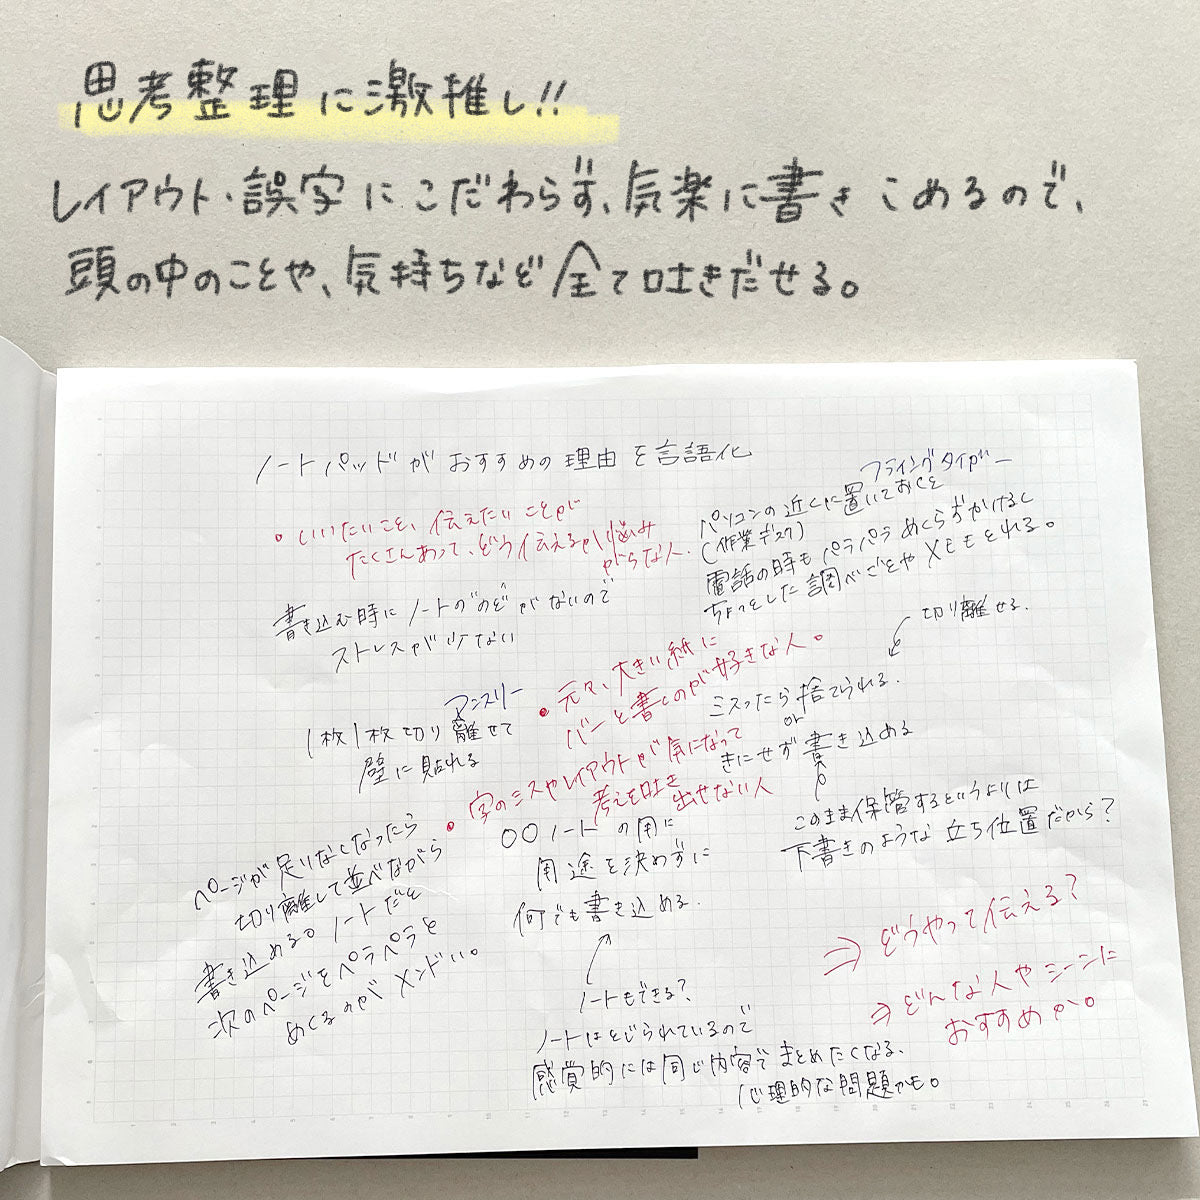 思考整理に激推し!!
レイアウト・誤字にこだわらず、気楽に書きこめるので、
頭の中のことや、気持ちなど全て吐きだせる。
ノートパッドがおすすめの理由を言語化
・いいたいこと、伝えたいことが
たくさんあって、どう伝えるか悩み
がちな人.
書き込む時にノートの"のど"がないので
ストレスが少ない
フライングタイガー
パソコンの近くに置いておくと
(作業デスク)
電話の時もパラパラめくらずかけるし
ちょっとした調べごとやメモもとれる。
切り離せる.
・元々、大きい紙に
バーと書くのが好きな人。
ミスったら捨てられる.
or
きにせず書き込める
アンスリー
1枚1枚切り離せて
壁に貼れる
・字のミスやレイアウトが気になって
考えを吐き
出せない人
このまま保管するというよりは
下書きのような立ち位置だから?
ページが足りなくなったら
切り離して並べながら
書き込める。ノートだと
次のページをペラペラと
めくるのがメンドい。
〇〇ノートの用に
用途を決めずに
何でも書き込める.
ノートもできる?
ノートはとじられているので
感覚的には同じ内容でまとめたくなる、
心理的な問題かも。
⇒どうやって伝える?
⇒どんな人やシーンに
おすすめか。